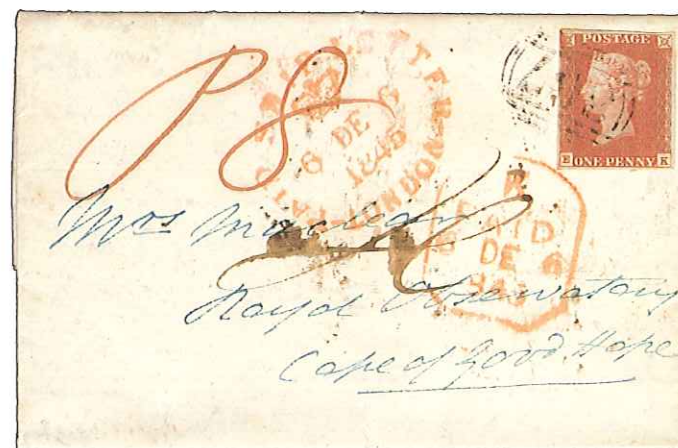 POSTAGE
ONE PENNY
E K
P 8
LETTER LONDON
6 DE 6
1845
PAID
DE 6
Mrs Maclear
Royal Observatory
Cape of Good Hope